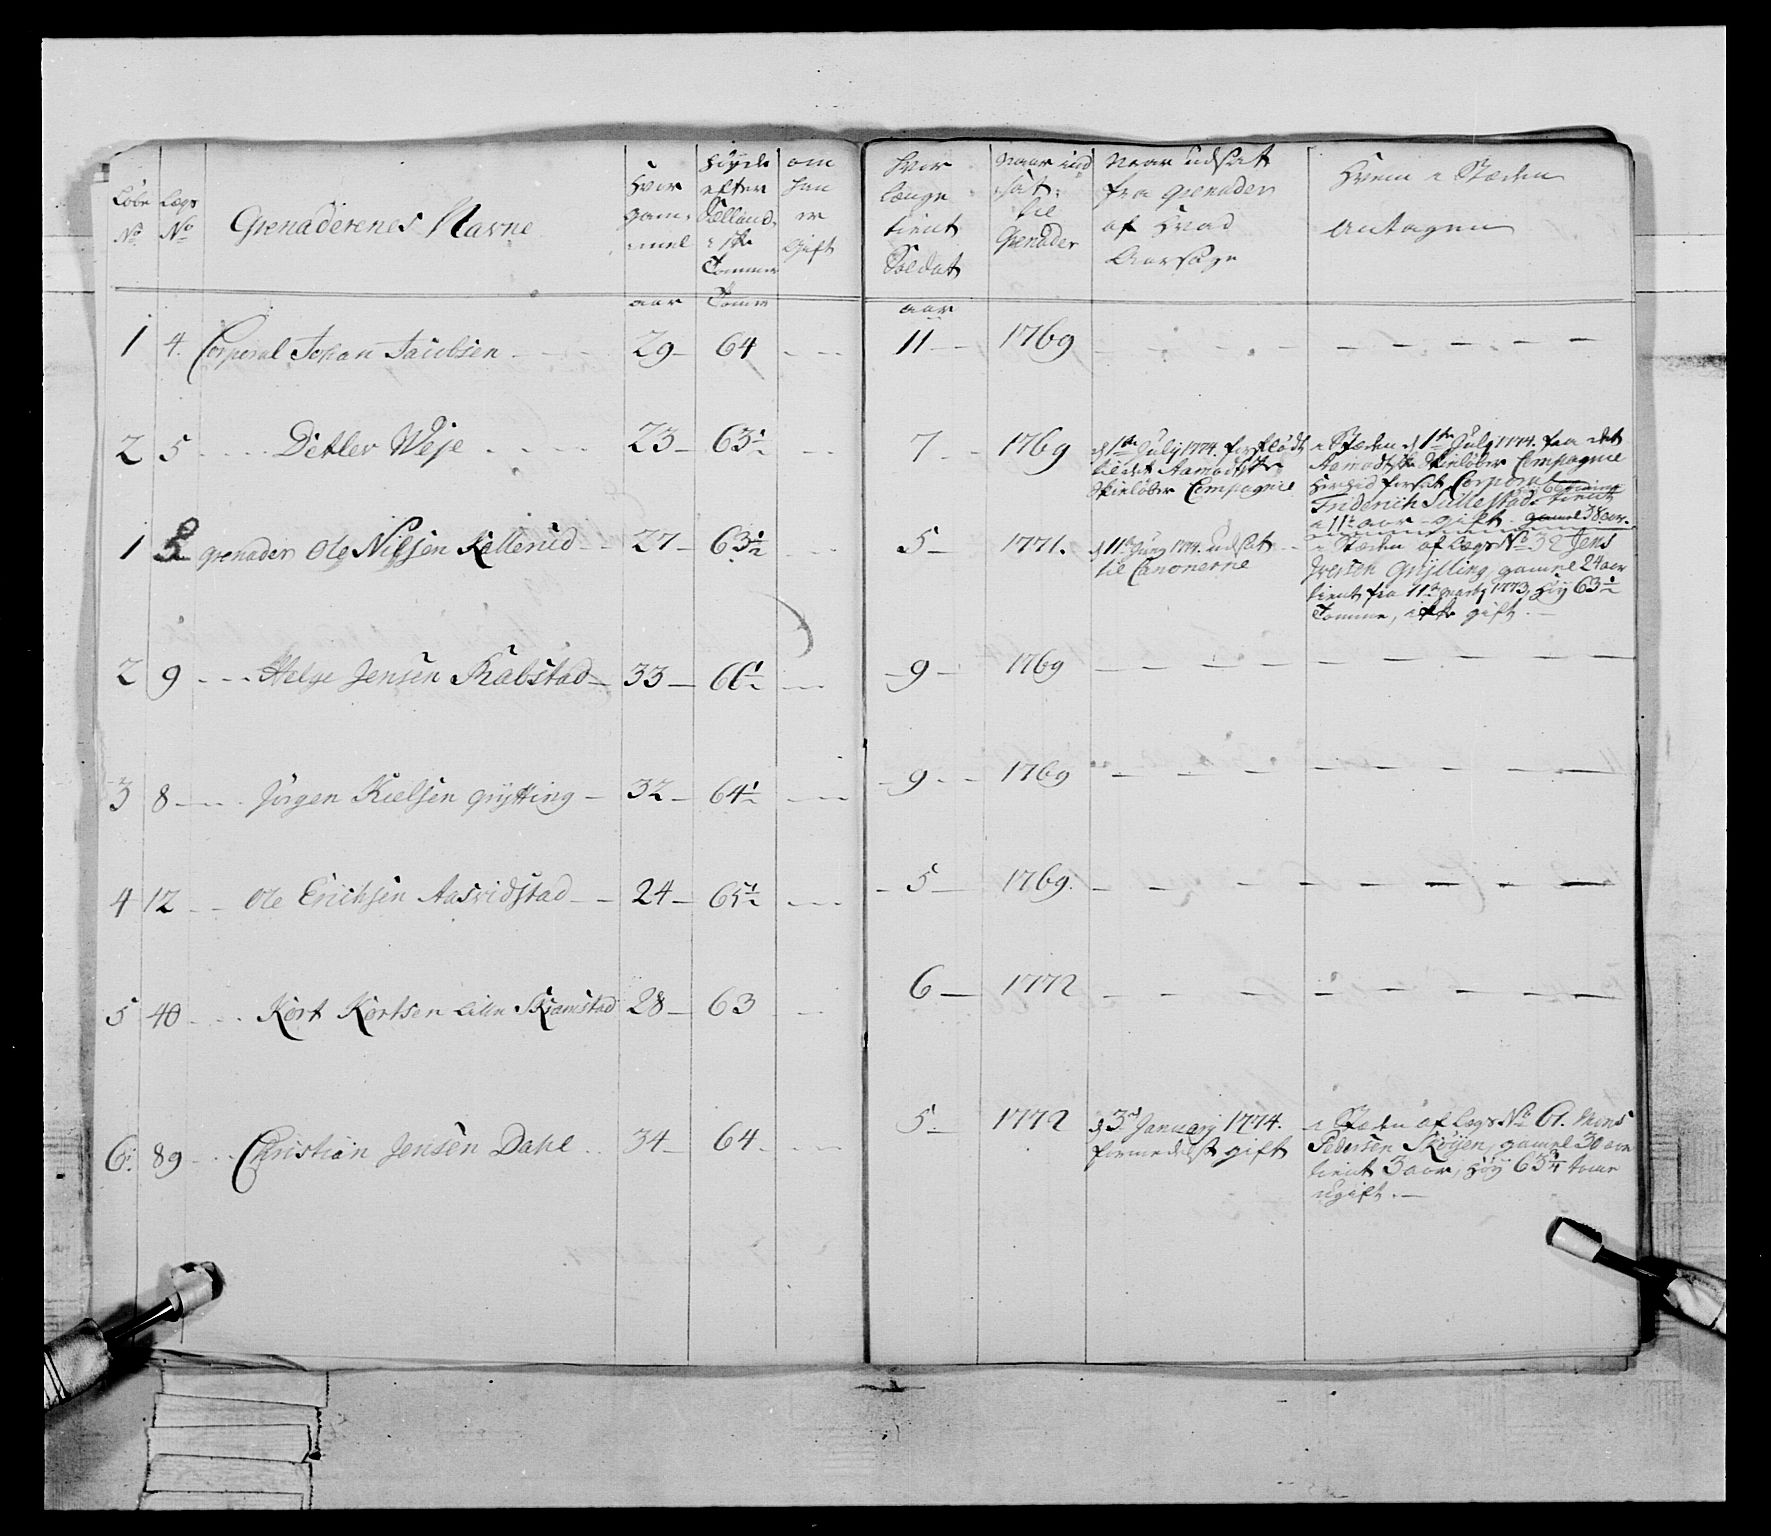 Löbe No
Lægs No
Grenaderenes Navne
Hvor gammel
Höyde efter Sællandske Tommer
om han er gift
Hvor længe tient Soldat
Naar indsat til Grenader
Naar udsat fra grenader af Hvad Aarsage
Hvem i Stæden Antagen
aar Tomer aar
1 4. Corporal Johan Jacobsen 29 64 11 1769
2 5 Detlev Weje 23 63½ 7 1769 d 1ste July 1774. forflödt til det Aamodtske Skielöber Compagnie
i Stæden d 1ste July 1774. fra det
Aamodtske Skielöber Compagnie
Herhid forsat Corporal
Friderich Sillestad tient
i 11 aar gift. gamel 38 aar.
1 2 grenader Ole Nilsen Kallerud 27 63½ 5 1771. d 11te Juny 1774. udsat til Canonerne
i Stæden af Lægs No 32 Jens
Iversen Grytting, gamel 24 aar
tient fra 11te Marty 1773, höy 63½
Tomme, icke gift.
2 9 Helge Jensen Skabstad 33 66½ 9 1769
3 8 Jörgen Kielsen Grytting 32 64½ 9 1769
4 12 Ole Erichsen Aasvidstad 24 65½ 5 1769.
5 40 Kort Kortsen Lille Skramstad 28 63 6 1772
6. 89 Christian Jensen Dahl 34 64 5 1772 d 3d January 1774. formedelst gift
i Stæden af Lægs No 61. Mons
Pedersen Sköyen, gamel 30 aar
tient 3 aar, höy 63¾ tome
ugift.